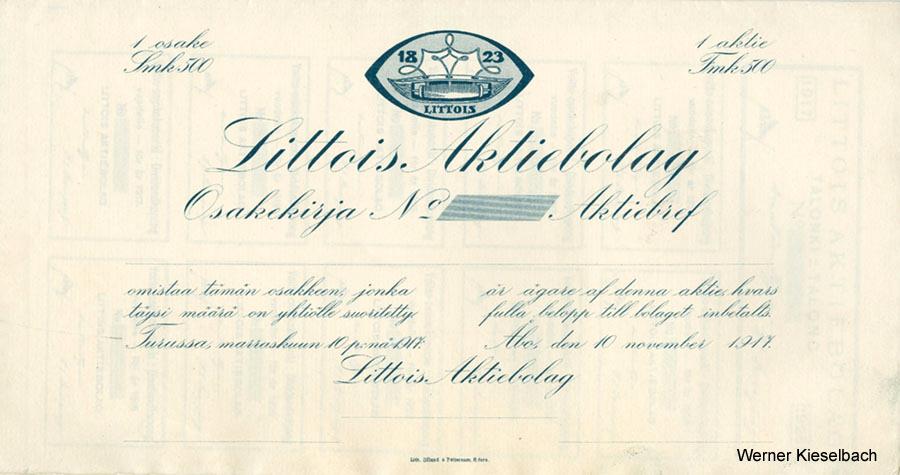 1 osake
Smk 500
18 23
LITTOIS
1 aktie
Fmk 500
Littois Aktiebolag
Osakekirja No Aktiebref
omistaa tämän osakkeen, jonka
täysi määrä on yhtiölle suoritettu.
Turussa, marraskuun 10 p:nä 1917.
är ägare af denna aktie, hvars
fulla belopp till bolaget inbetalts.
Åbo, den 10 november 1917.
Littois Aktiebolag
Lith.
Werner Kieselbach